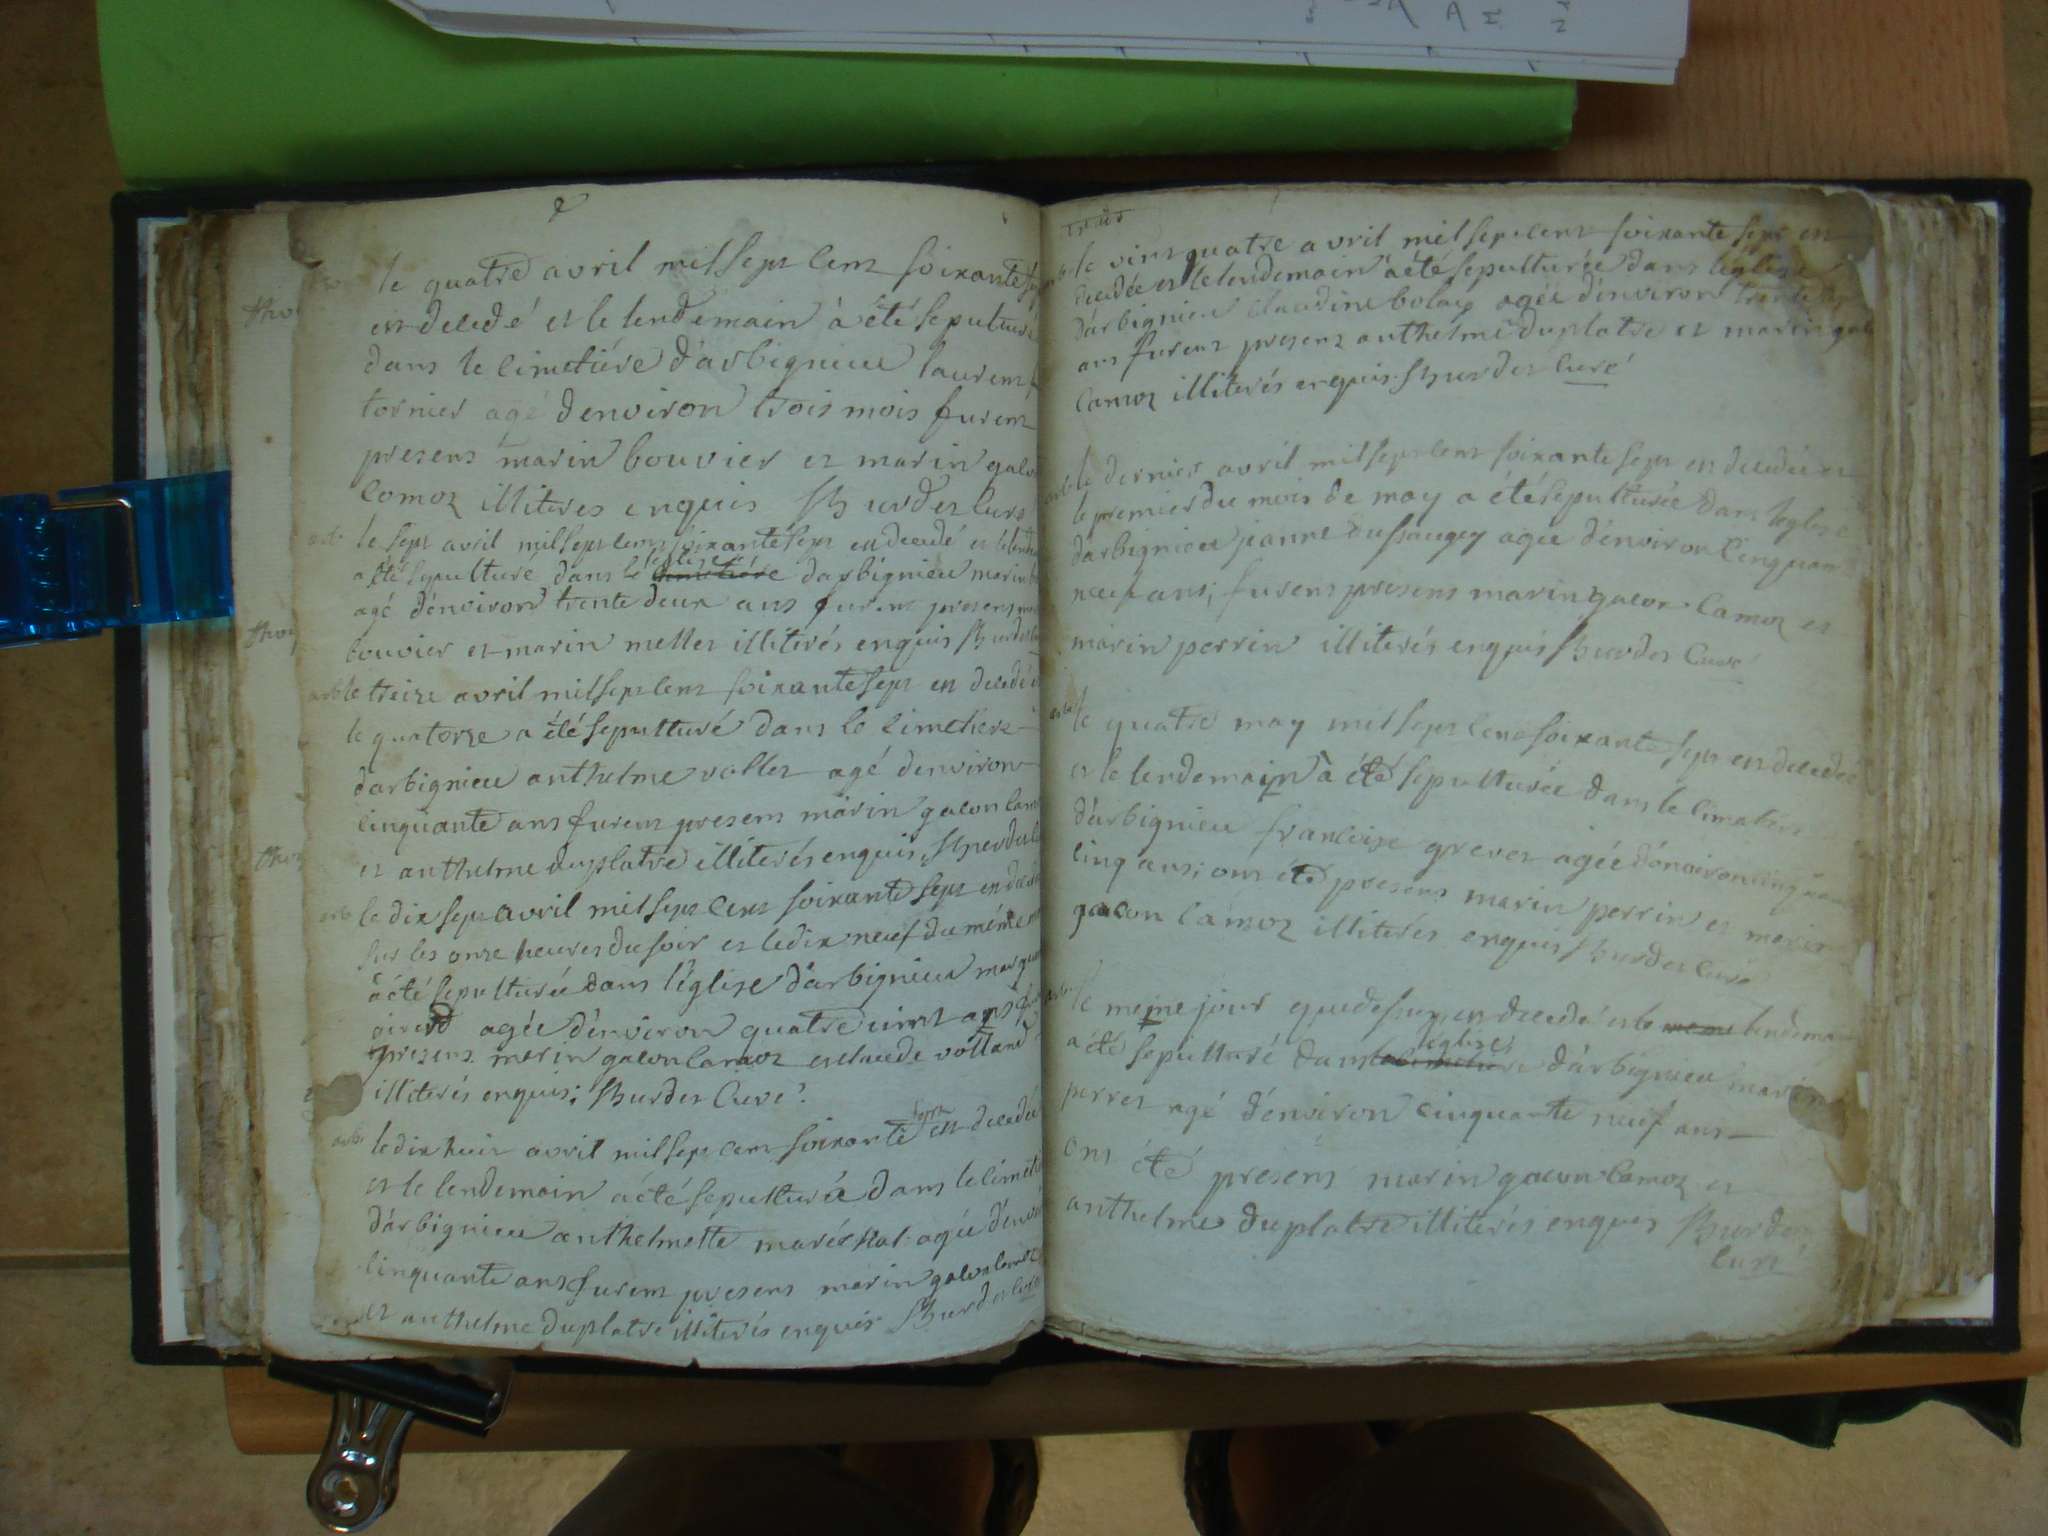 le quatre avril mil sept cent soixante
est decedé et le lendemain à été sepulturé
dans le cimetiére d'arbignieu laurent
tornier agé d'environ trois mois furent
presens marin bouvier et marin galon
camoz illiteres enquis Burdet curé
arb. le sept avril mil sept cent soixante sept est decedé et le
a été sepulture dans l'église cimetiére darbignieu marin
agé d'environ trente deux ans furent presens
bouvier et marin mellet illiterés enquis Burdet
arb le treize avril mil sept cent soixante sept est decedé
le quatorze a été sepulturé dans le cimetiere
darbignieu anthelme vollet agé denviron
cinquante ans furent presens marin gacon
et anthelme duplatre illiterés enquis Burdet
arb le dix sept avril mil sept cent soixante sept est
sur les onze heures du soir et le dix neuf du même
à été sepulturée dans l'église d'arbignieu
agée d'environ quatre vint ans
presens marin gacon camoz et claude volland
illiterés enquis; Burdet curé
arb. le dix huit avril mil sept cent soixante sept est decedée
et le lendemain à été sepulturée dans le
d'arbignieu anthelmette maréchal agée
cinquante ans furent presens marin gacon camoz
et anthelme duplatre illiterés enquis Burdet curé
le vint quatre avril mil sept cent soixante sept est
decedée et le lendemain à été sepulturée dans l'église
d'arbignieu claudine agée d'environ
ans furent presens anthelme duplatre et marin
camoz illiterés enquis Burdet curé
arb le dernier avril mil sept cent soixante sept est decedée et
le premier du mois de may a été sepulturée dans l'eglise
darbignieu jeanne dussaugey agée d'environ
neuf ans, furent presens marin gacon camoz et
marin perrin illiterés enquis Burdet curé
arb le quatre may mil sept cent soixante sept est decedée
et le lendemain à été sepulturée dans le cimetiere
d'arbignieu francoise grevet agée d'environ
cinq ans; ont été presens marin perrin et marin
gacon camoz illiterés enquis Burdet curé
le meme jour que dessus est decedé et le meme lendemain
a été sepulturé dans l'église d'arbignieu marin
perret agé d'environ cinquante neuf ans
ont été presens marin gacon camoz et
anthelme duplatre illiterés enquis Burdet
curé